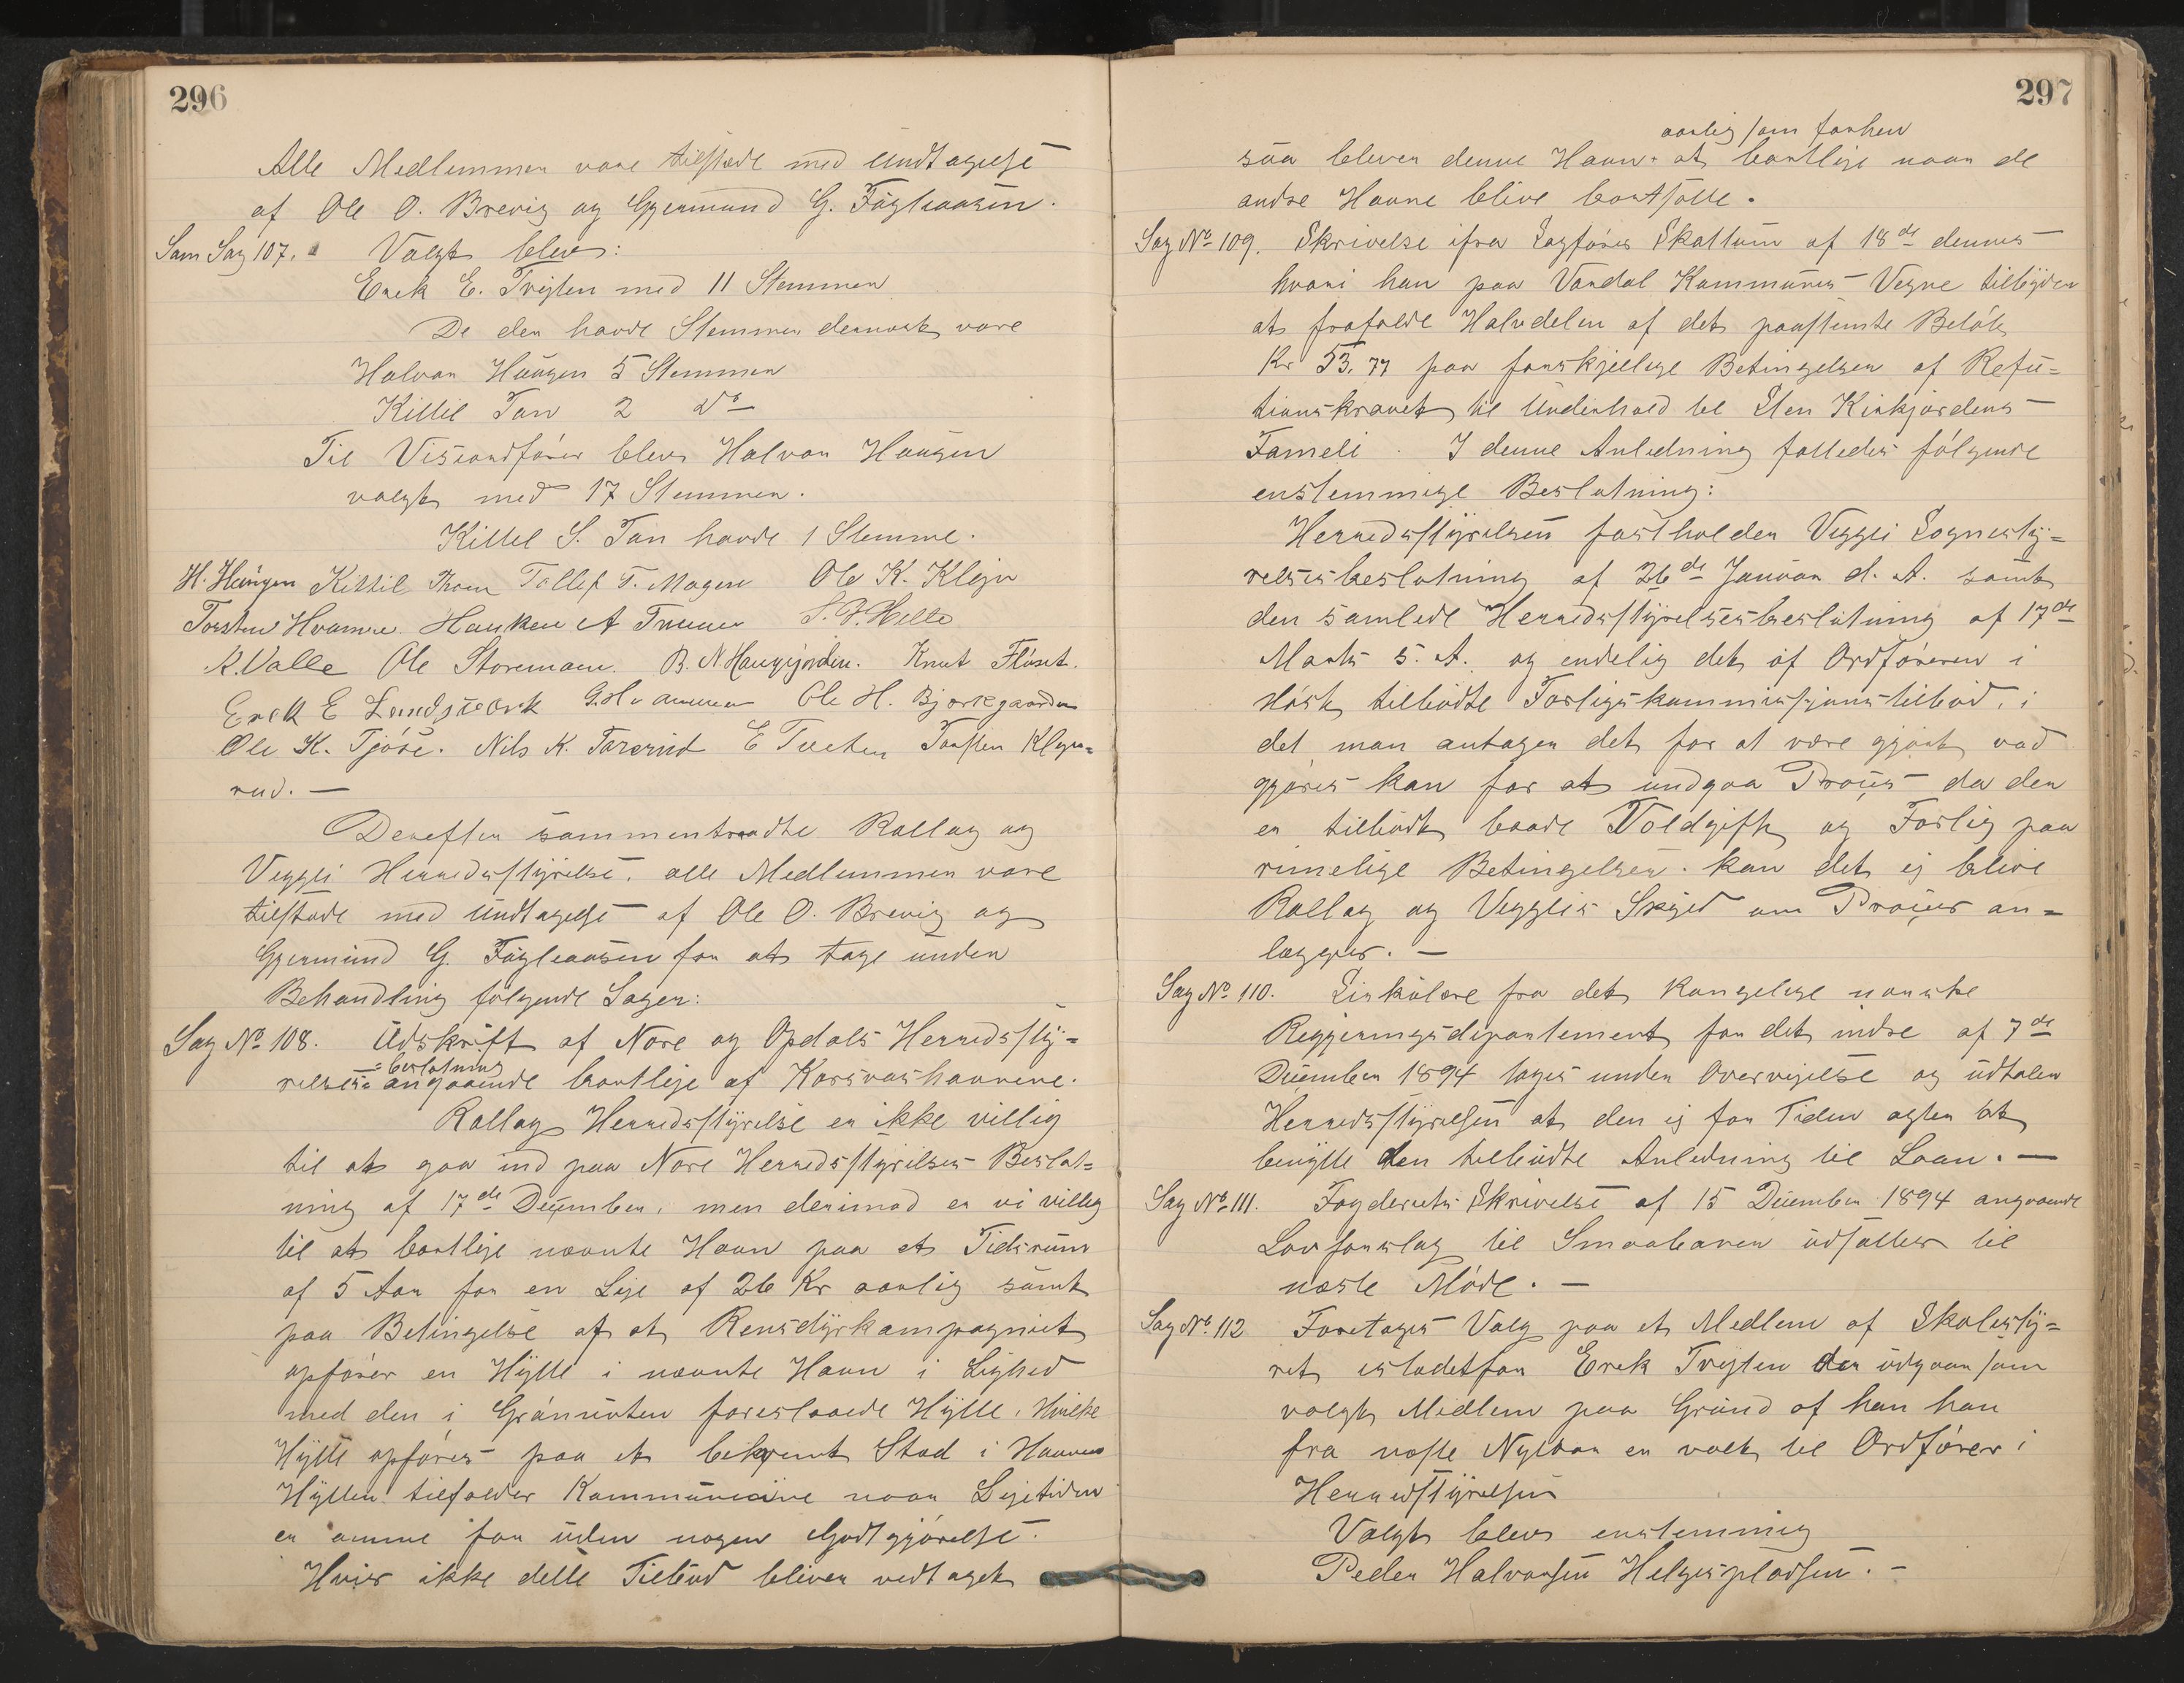 296
Alle Medlemmer vare tilstede med Undtagelse
af Ole O. Brevig og Gjermund G. Fügleaasen.
Sam Sag 107. Valgt blev:
Erek E. Trejten med 11 Stemmer
De der havde Stemmer dernæst vare
Halvor Haugen 5 Stemmer
Kittil Tan 2 Do
Til Viseordfører blev Halvor Haugen
valgt med 17 Stemmer.
Kittel S. Tan havde 1 Stemme.
H. Haugen Kittil Tollef T. Mogen Ole K. Klejv
Torsten Hvamme. Hauken A
K. Valle Ole Storemoen. B. N. Haugjorden. Knut Fløset.
Erek E G. Hvammen Ole H. Bjørkgaarden
Ole K. Tjöse. Nils K. E Torsten
rud. —
Derefter sammentraadte Rollag og
Veggli Herredsstyrelse. alle Medlemmer vare
tilstede med Undtagelse af Ole O. Brevig og
Gjermund G. Fügleaasen for at tage under
Behandling følgende Sager:
Sag No 108. Udskrift af Nore og Opdals Herredssty=
relses=beslutning angaaende bortleje af Korsvashavnene.
Rollag Herredsstyrelse er ikke villig
til at gaa ind paa Nore Herredsstyrelses Beslut=
ning af 17de December, men derimod er vi villig
til at bortleje nævnte Havn paa et Tidsrum
af 5 Aar for en Leje af 26 Kr aarlig samt
paa Betingelse af at Rensdyrkompagniet
opfører en Hytte i nævnte Havn i Lighed
med den i Grånuten foreslaaede Hytte. Hvilke
Hytte opføres paa et bekvemt Stad i Havnen
Hytten tilfalder Kommunerne naar Lejetiden
er omme for uden nogen Godtgjørelse.
Hvis ikke dette Tilbud bliver vedtaget
297
aarlig som forhen
saa bliver denne Havn at bortleje naar de
andre Havne blive bortsatte.
Sag No 109. Skrivelse ifra Sagfører Skattum af 18de dennes
hvori han paa Vardal Kommunes Vegne tilbyder
at frafalde Halvdelen af det paastemte Beløb
Kr 53.77 paa forskjellige Betingelser af Refu=
tionskravet til Underhold til Sten Kirkjordens
Fameli. I denne Anledning fattedes følgende
enstemmige Beslutning:
Herredsstyrelsen fastholder Veggli Sognesty=
relsesbeslutning af 26de Januar d. A. samt
den samlede Herredsstyrelsesbeslutning af 17de
Marts s. A. og endelig det af Ordføreren i
Høst tilbudte Forligskommissjonstilbud, i
det man antager det for at være gjort vad
gjøres kan for at undgaa Proces da der
er tilbudt baade Voldgift og Forlig paa
rimelige Betingelser. kan det ej blive
Rollag og Vegglis Skyld om Proces an=
lægges. —
Sag No 110. Sirkulære fra det Kongelige norske
Regjeringsdepartement for det indre af 7de
December 1894 toges under Overvejelse og udtaler
Herredsstyrelsen at den ej for Tiden agter at
benytte den tilbudte Anledning til Laan. —
Sag No 111. Fogderiets Skrivelse af 15 December 1894 angaaende
Lovforslag til Smaabaren udsættes til
næste Møde. —
Sag No. 112 Foretoges Valg paa et Medlem af Skolesty=
ret istedetfor Erek Trejten der udgaar som
valgt Medlem paa Grund af han har
fra næste Nytaar er valt til Ordfører i
Herredstyrelsen
Valgt blev enstemmig
Peder Halvorsen Helgesplassen. —